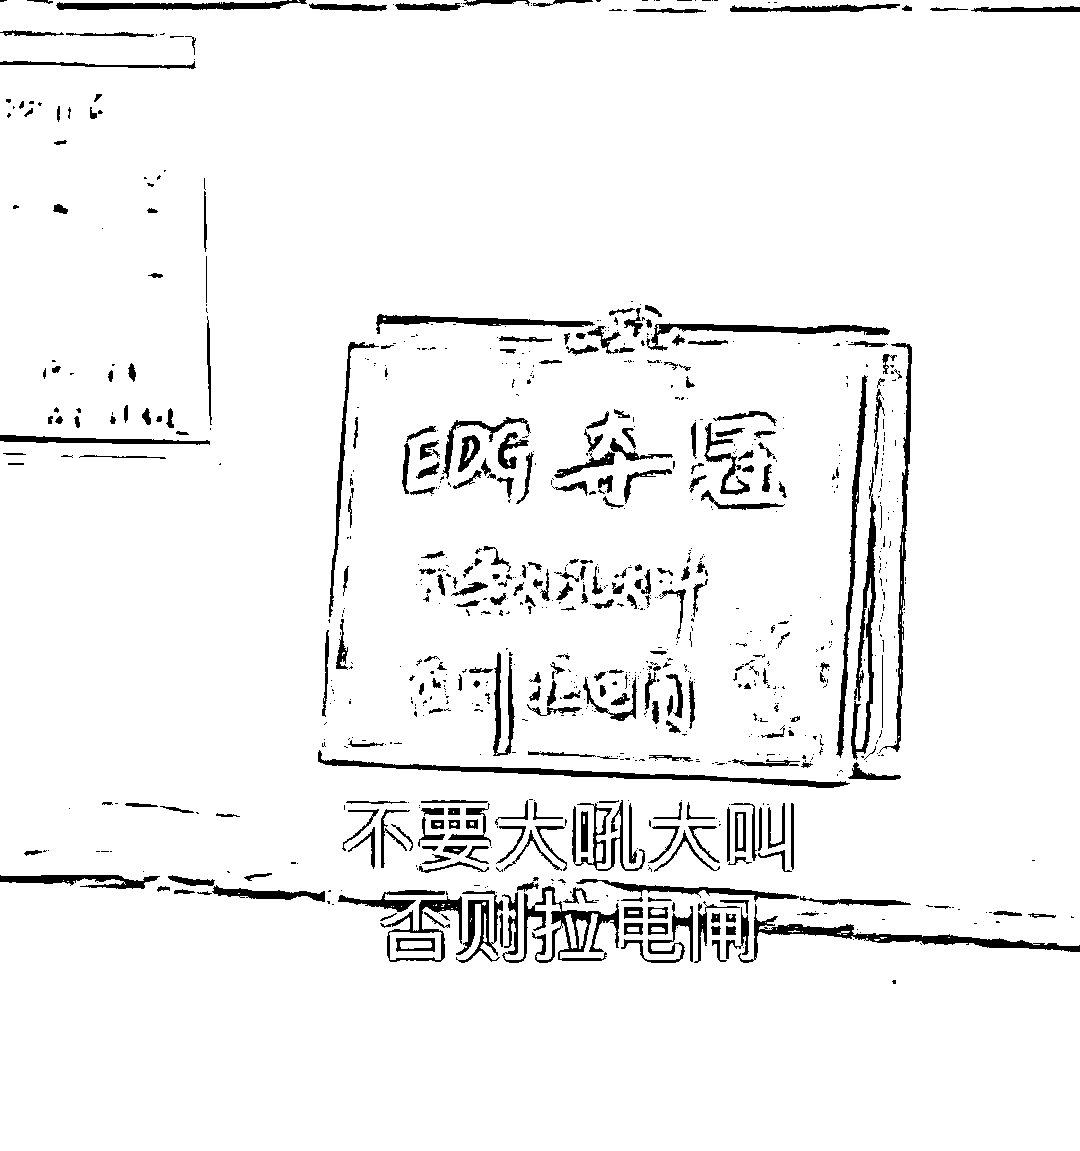 EDG夺冠
不要大吼大叫
否则拉电闸
不要大吼大叫
否则拉电闸